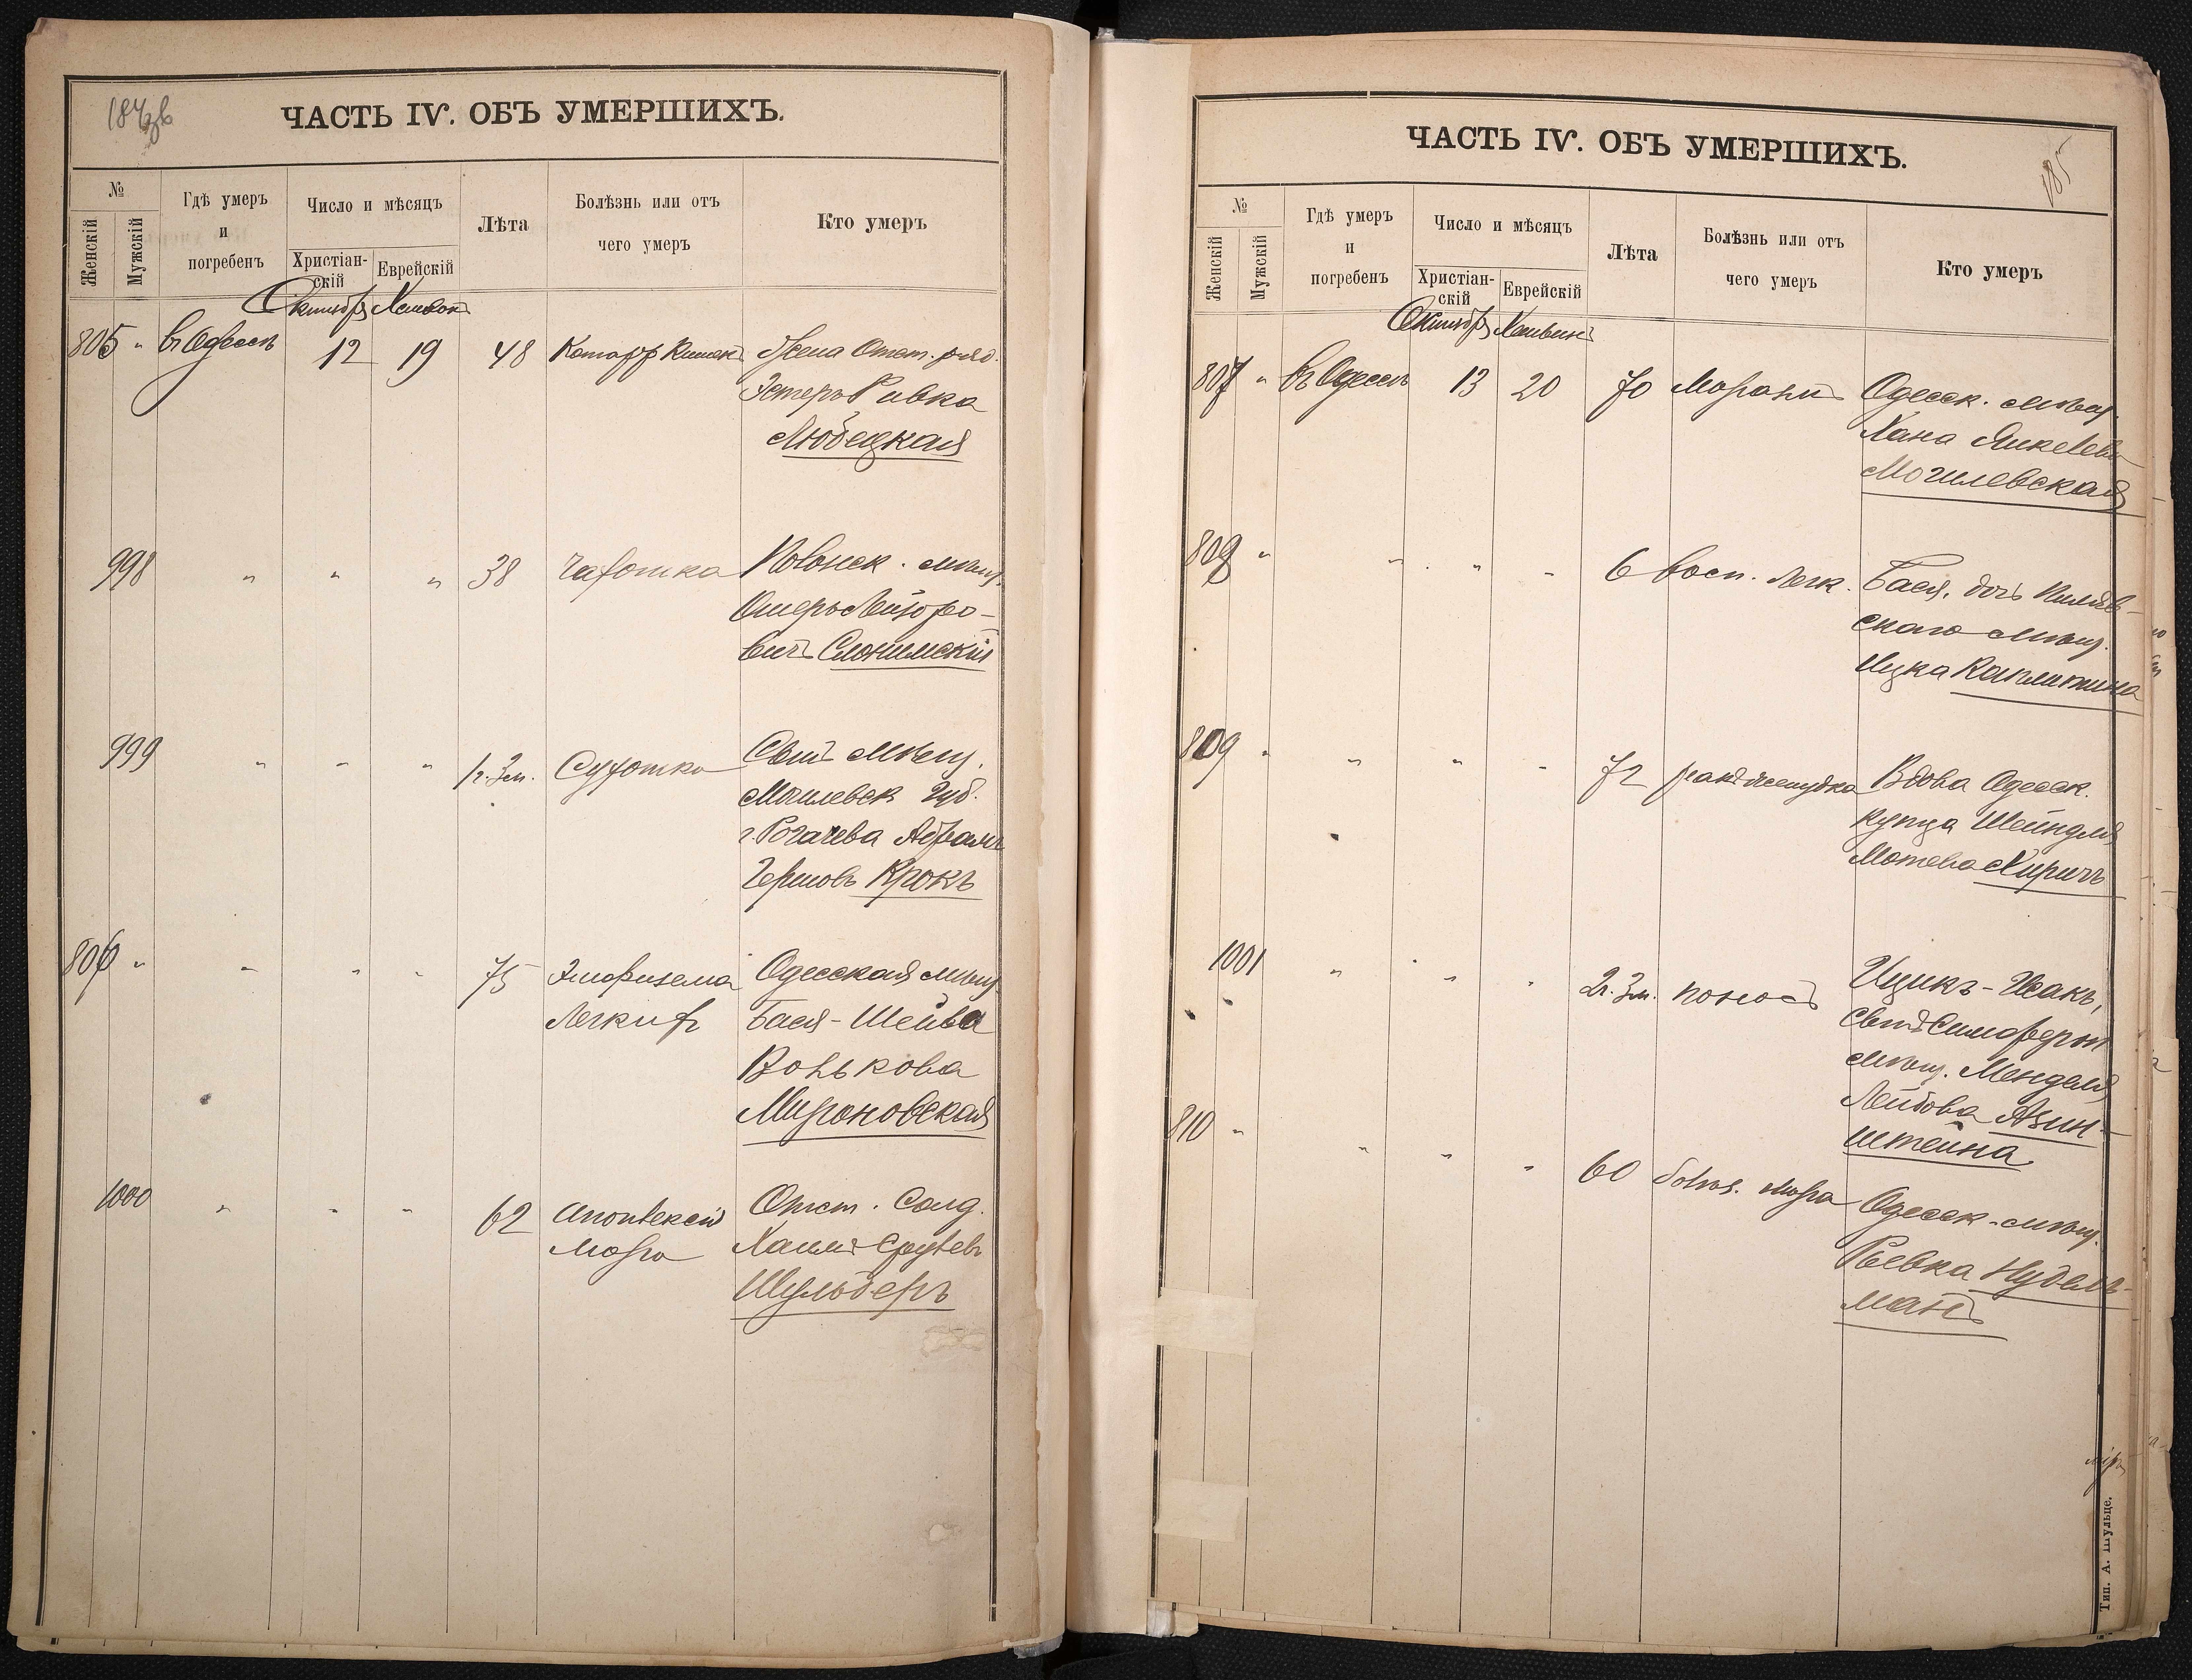 ЧАСТЬ IV. ОБЪ УМЕРШИХЪ.
№
Женскій
Мужскій
Гдѣ умеръ
и
погребенъ
Число и мѣсяцъ
Христіан-
скій
Еврейскій
Лѣта
Болѣзнь или отъ
чего умеръ
Кто умеръ
805 " въ Одессѣ 12 19 48 Катарръ Кишекъ Жена Отст. ряд.
Эстеръ Ривка
Любецкая
998 " " " 38 Чахотка Ковонск. мѣщ.
Ошеръ Лейзоро-
вичъ Слонимскій
999 " " " 1г. 3м. Сухотка Сынъ мѣщ.
Могилевск губ.
г. Рогачева Абрамъ
Гершовъ Крокъ
806 " " " " 75 Эмфизема Одесская мѣщ.
Легкихъ Бася-Шейва
Вонькова
Мироновская
1000 " " " 62 апоплексія Отст. Солд.
Мозга Хаимъ Срулевъ
Шульберъ
ЧАСТЬ IV. ОБЪ УМЕРШИХЪ.
185
№
Женскій
Мужскій
Гдѣ умеръ
и
погребенъ
Число и мѣсяцъ
Христіан-
скій
Еврейскій
Лѣта
Болѣзнь или отъ
чего умеръ
Кто умеръ
807 " въ Одессѣ 13 20 70 Одесск. мѣщ.
Хана Янкелева
Могилевская
808 " " " " 6 Восп. Легк. Бася, дочь
скаго мѣщ.
Ицка Каплитина
809 " " " " 72 ракъ желудка Вдова Одесск.
купца Шейндля
Мотева Киричъ
1001 " " " 2г. 3м. поносъ Ицикъ-Исакъ,
Сынъ Симфероп
мѣщ. Менделя
Лейбова Азин-
штейна
810 " " " " 60 болѣз. мозга Одесск. мѣщ.
Ривка Нудель-
манъ
Тип. А. Шульце.